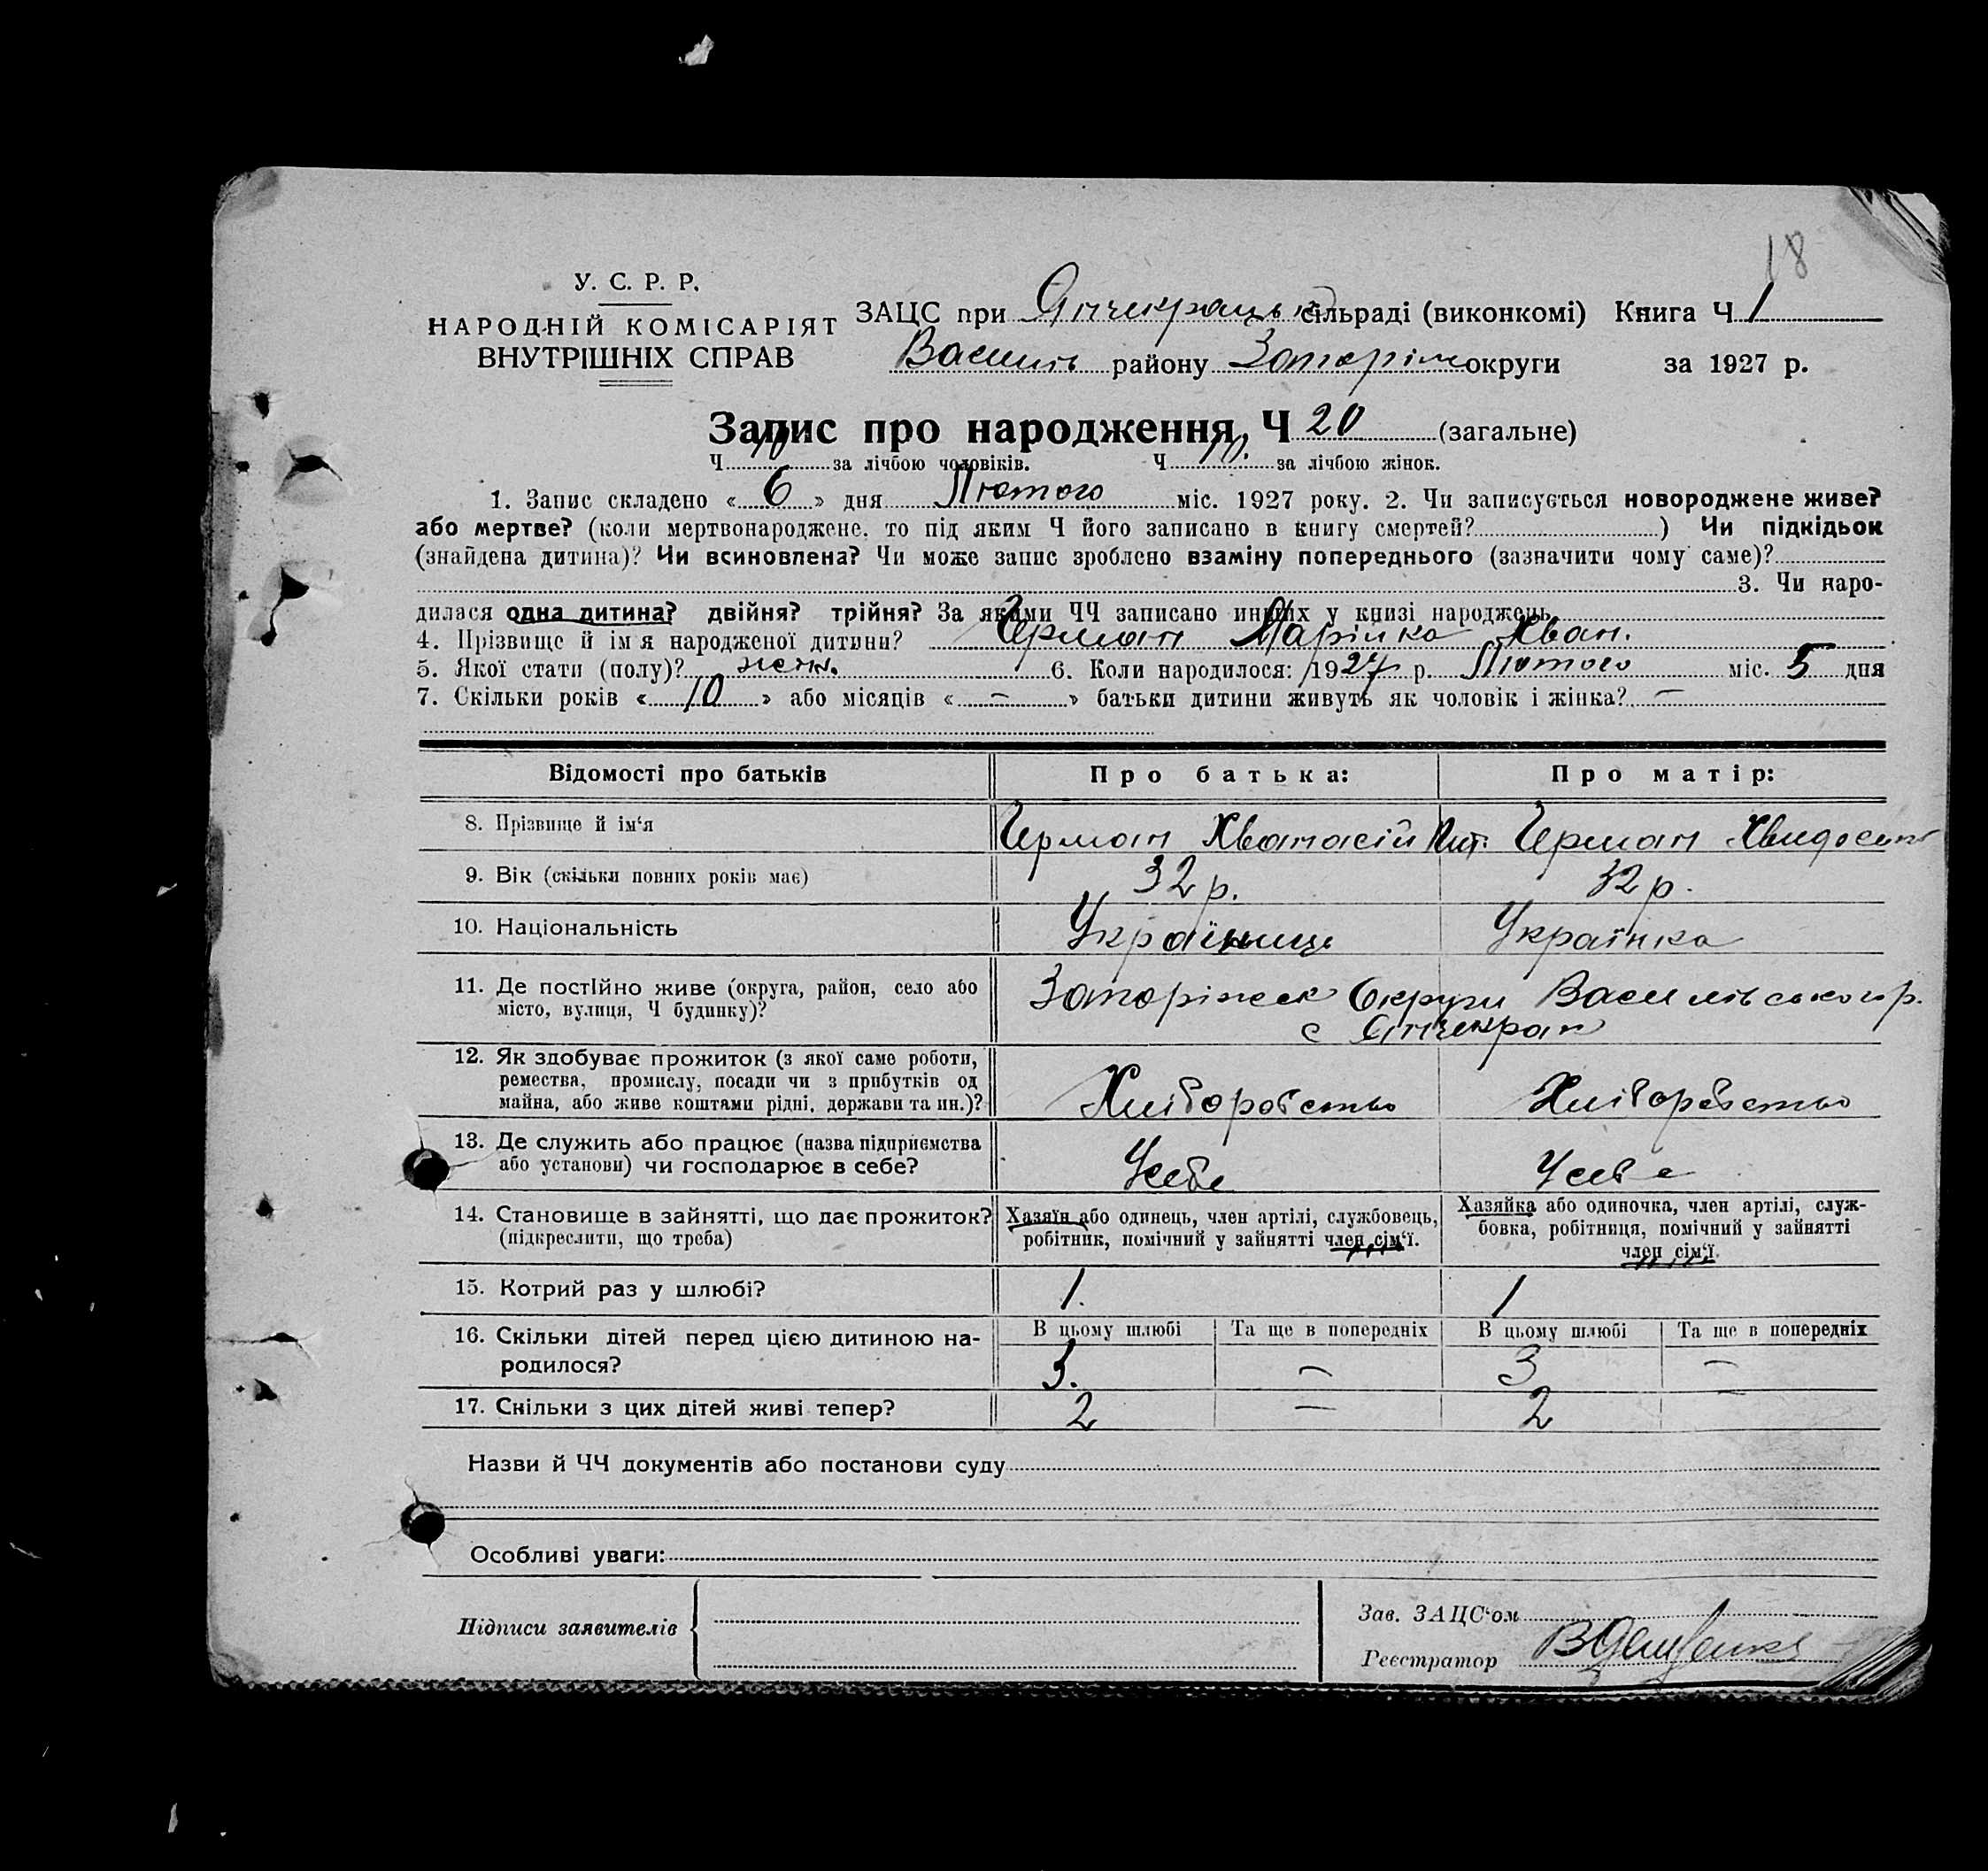 18
У. С. Р. Р.
НАРОДНІЙ КОМІСАРІЯТ
ВНУТРІШНІХ СПРАВ
ЗАЦС при Янчекрацькій сільраді (виконкомі) Книга Ч 1
Василів району Запоріж округи за 1927 р.
Запис про народження, Ч 20 (загальне)
Ч 10 за лічбою чоловіків. Ч 10. за лічбою жінок.
1. Запис складено « 6 » дня Лютого міс. 1927 року. 2. Чи записується новороджене живе?
або мертве? (коли мертвонароджене, то під яким Ч його записано в книгу смертей? ) Чи підкідьок
(знайдена дитина)? Чи всиновлена? Чи може запис зроблено взаміну попереднього (зазначити чому саме)?
3. Чи наро-
дилася одна дитина? двійня? трійня? За якими ЧЧ записано инших у книзі народжень
4. Прізвище й ім'я народженої дитини? Герман Марійка Хван.
5. Якої стати (полу)? жен. 6. Коли народилося: 1927 р. Лютого міс. 5 дня
7. Скільки років « 10 » або місяців « — » батьки дитини живуть як чоловік і жінка? —
Відомості про батьків Про батька: Про матір:
8. Прізвище й ім'я Герман Хванасій Герман
9. Вік (скільки повних років має) 32 р. 32 р.
10. Національність Українець Українка
11. Де постійно живе (округа, район, село або
місто, вулиця, Ч будинку)?
Запоріжск Округи Василівського р.
с Янчекрак
12. Як здобуває прожиток (з якої саме роботи,
ремества, промислу, посади чи з прибутків од
майна, або живе коштами рідні, держави та ин.)?
Хліборобство Хліборобство
13. Де служить або працює (назва підприємства
або установи) чи господарює в себе?
Усебе Усебе
14. Становище в зайнятті, що дає прожиток?
(підкреслити, що треба)
Хазяїн або одинець, член артілі, службовець,
робітник, помічний у зайнятті член сім'ї.
Хазяйка або одиночка, член артілі, служ-
бовка, робітниця, помічний у зайнятті
член сім'ї.
15. Котрий раз у шлюбі? 1. 1
16. Скільки дітей перед цією дитиною на-
родилося?
В цьому шлюбі Та ще в попередніх В цьому шлюбі Та ще в попередніх
3. — 3 —
17. Скільки з цих дітей живі тепер? 2 — 2 —
Назви й ЧЧ документів або постанови суду
Особливі уваги:
Підписи заявителів
Зав. ЗАЦС'ом
Реєстратор